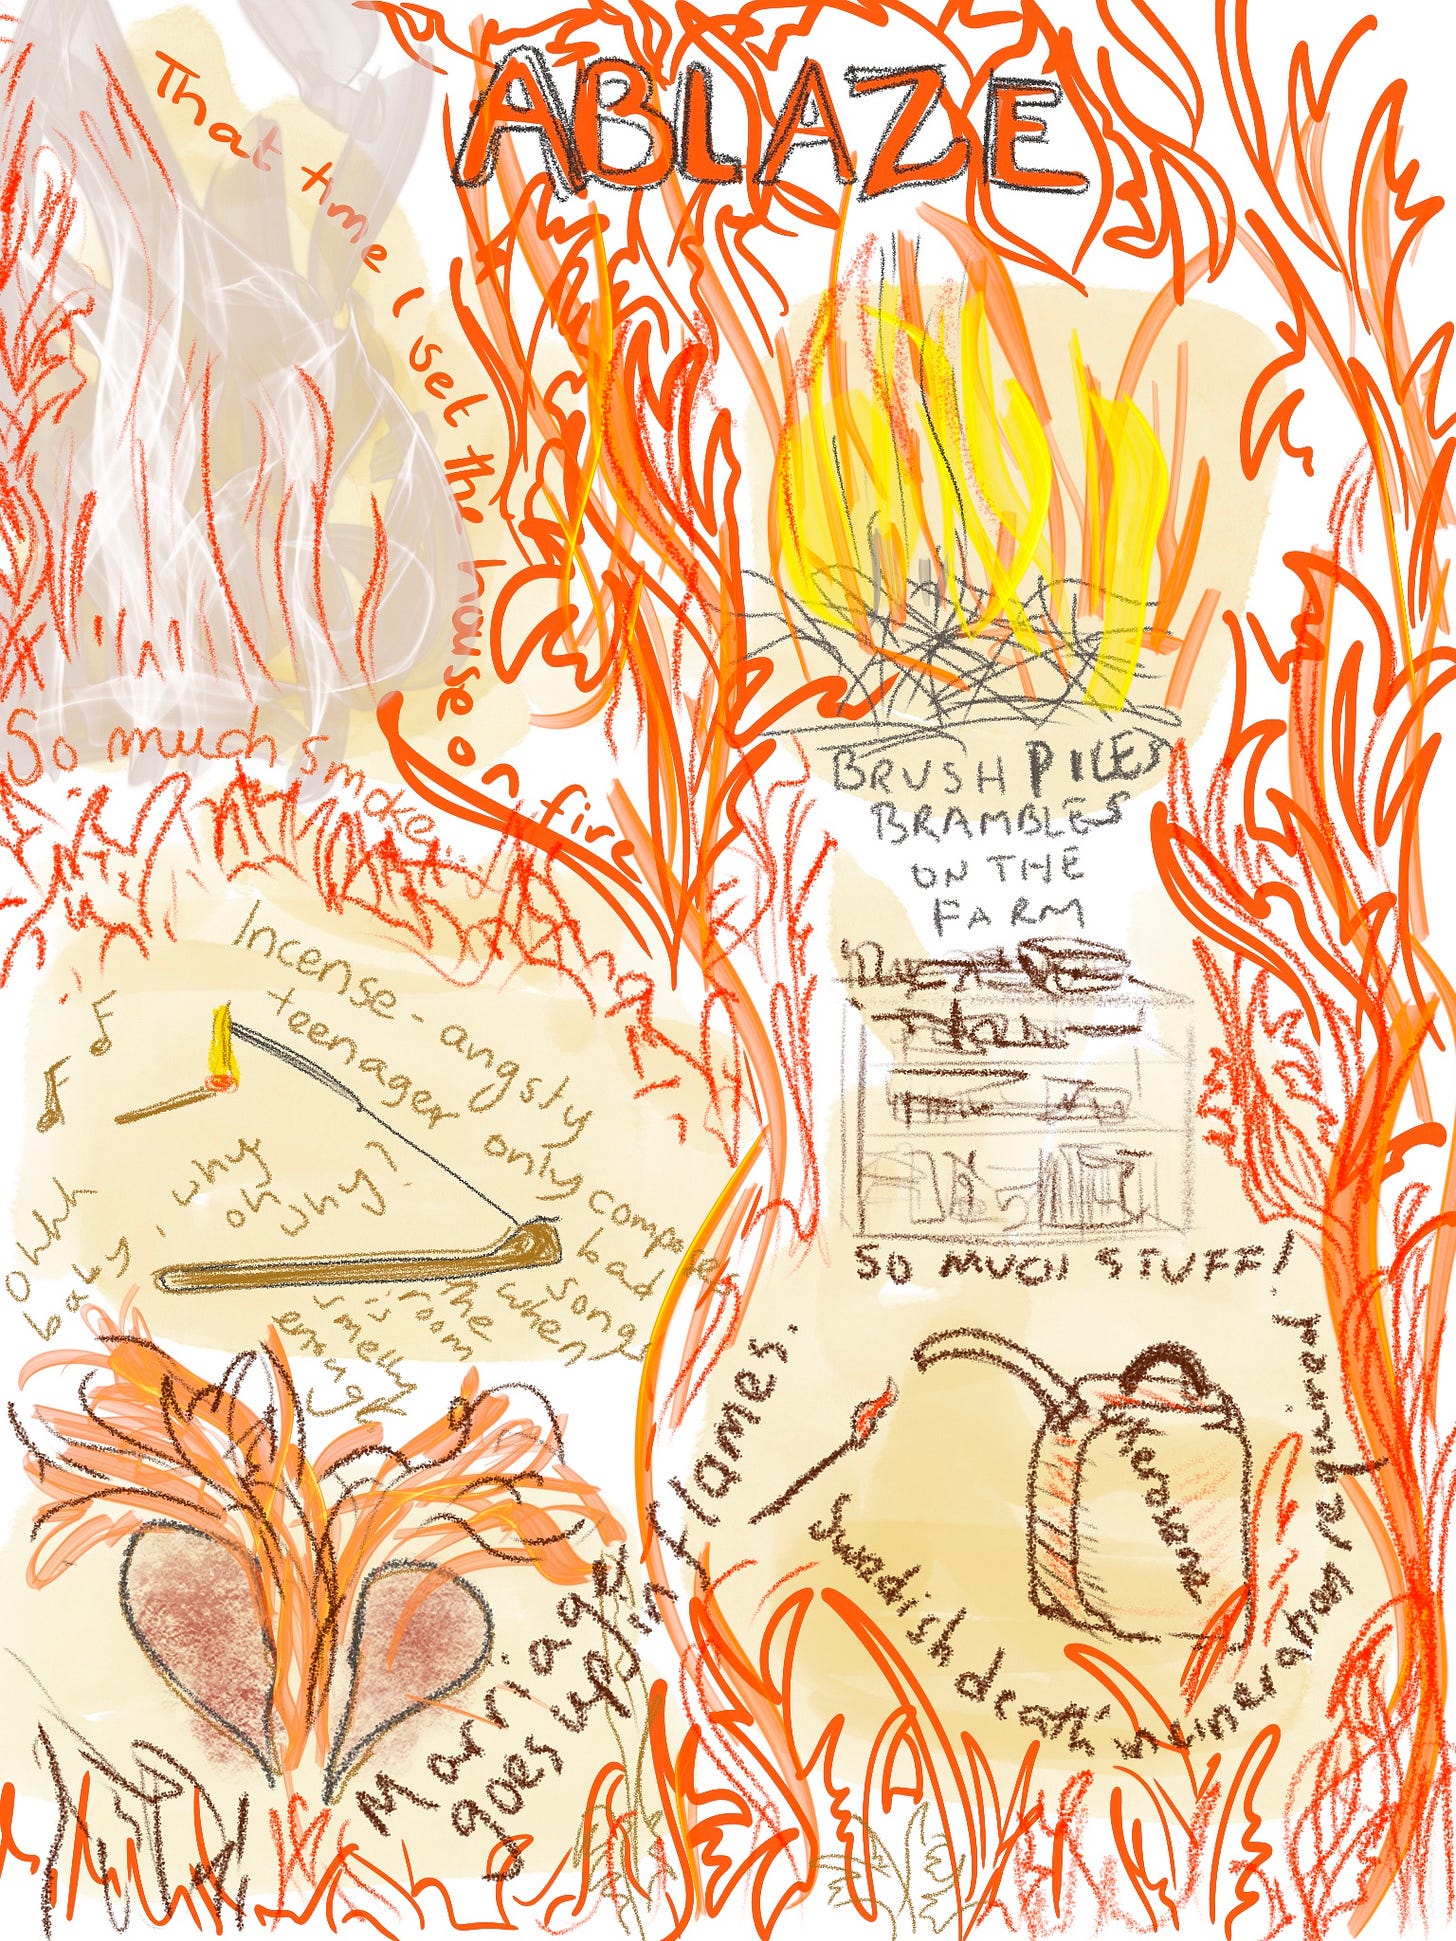 ABLAZE
That time I set the house on fire
So much smoke
BRUSH PILES
BRAMBLES
ON THE
FARM
Incense - angsty
teenager only composes
bad songs
when
the
room
is
smelly
enough
Ohhh
baby
why
oh why?
SO MUCH STUFF!
Kerosene
Swedish death incineration required
Marriage
goes up in flames.